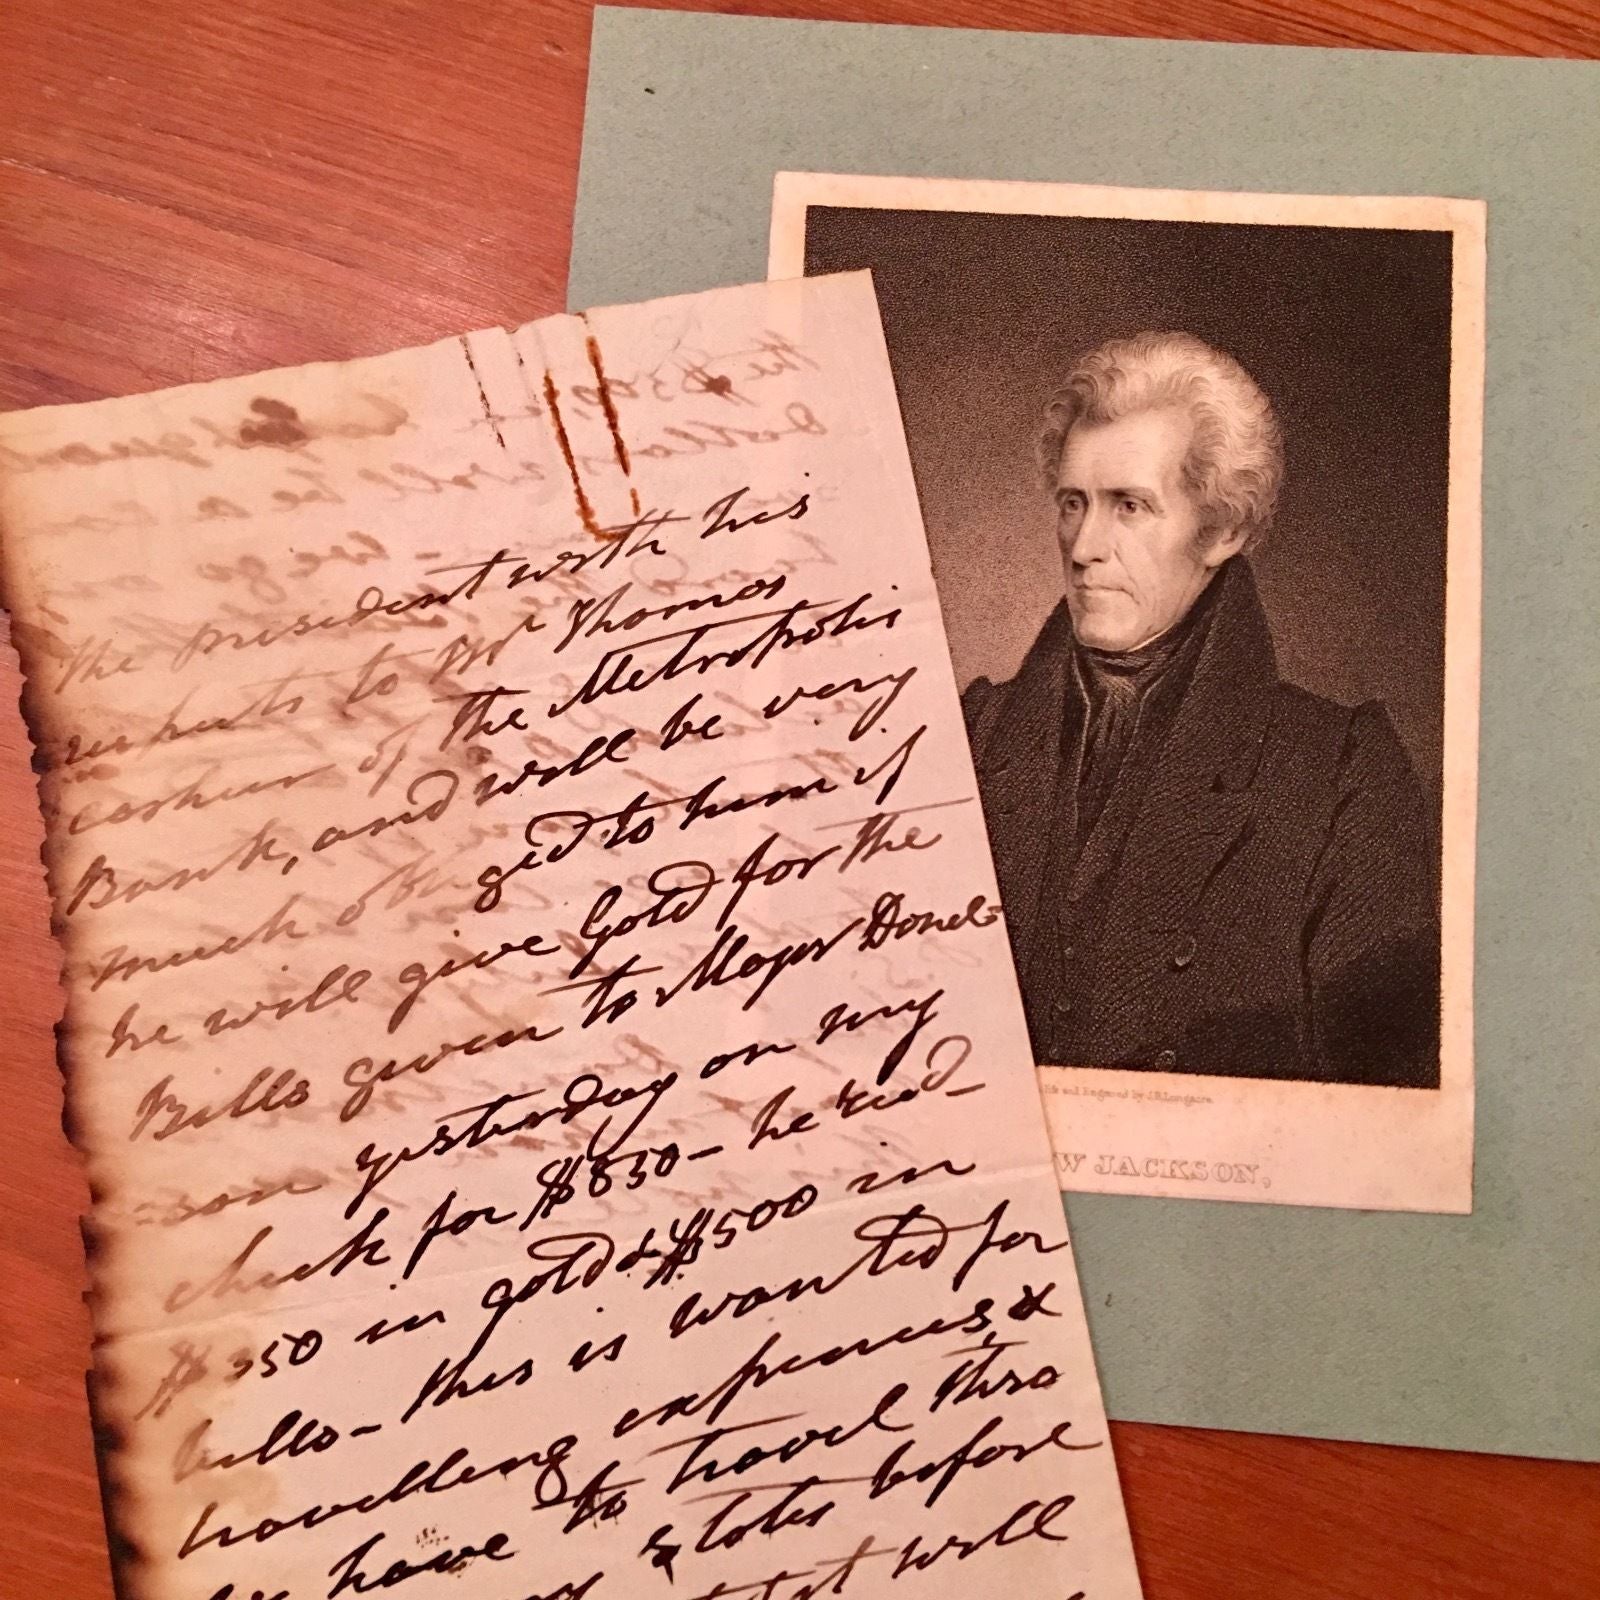 The president with his
respects to Mr Thomas
cashier of the Metropolis
Bank, and will be very
much obliged to him if
he will give Gold for the
Bills given to Major Donel=
=son yesterday on my
check for $850 - he recd
$350 in gold & $500 in
bills - this is wanted for
travelling expenses, &
have to travel thro
states before
will
Engraved by J.B.Longacre.
W JACKSON,